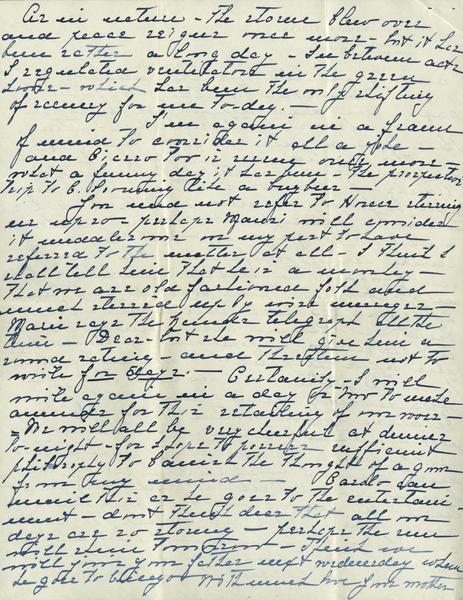 As in nature - The storm blew over
and peace reigns once more - but it has
been rather a long day - In between acts
I regulated ventilators in the green
house - which has been the only shifting
of scenery for me to-day. -
I'm again in a frame
of mind to consider it all a joke -
and Cicero too is once more -
what a funny day it has been - The prospective
trip to C. is like a
You need not refer to Horace
us up so perhaps Marei will consider
it on my part to have
referred to the matter at all - I think I
shall tell him that he is a monkey -
That we are old fashioned folk and
much stirred up by wire messages -
Marei says the telegraph all the
time - Dear - but she will give him a
sound rating and threaten not to
write for days. - Certainly - I will
write again in a day or two to make
amends for this retailing of our woes -
- We will all be very cheerful at dinner
to-night - for I hope to possess sufficient
philosophy to banish the thought of a gun
from my mind - Carlo can
mail this as he goes to the entertain-
ment - don't think dear that all our
days are so stormy - perhaps the sun
will shine tomorrow -
will your father next wednesday when
he goes to Chicago With much love Your mother